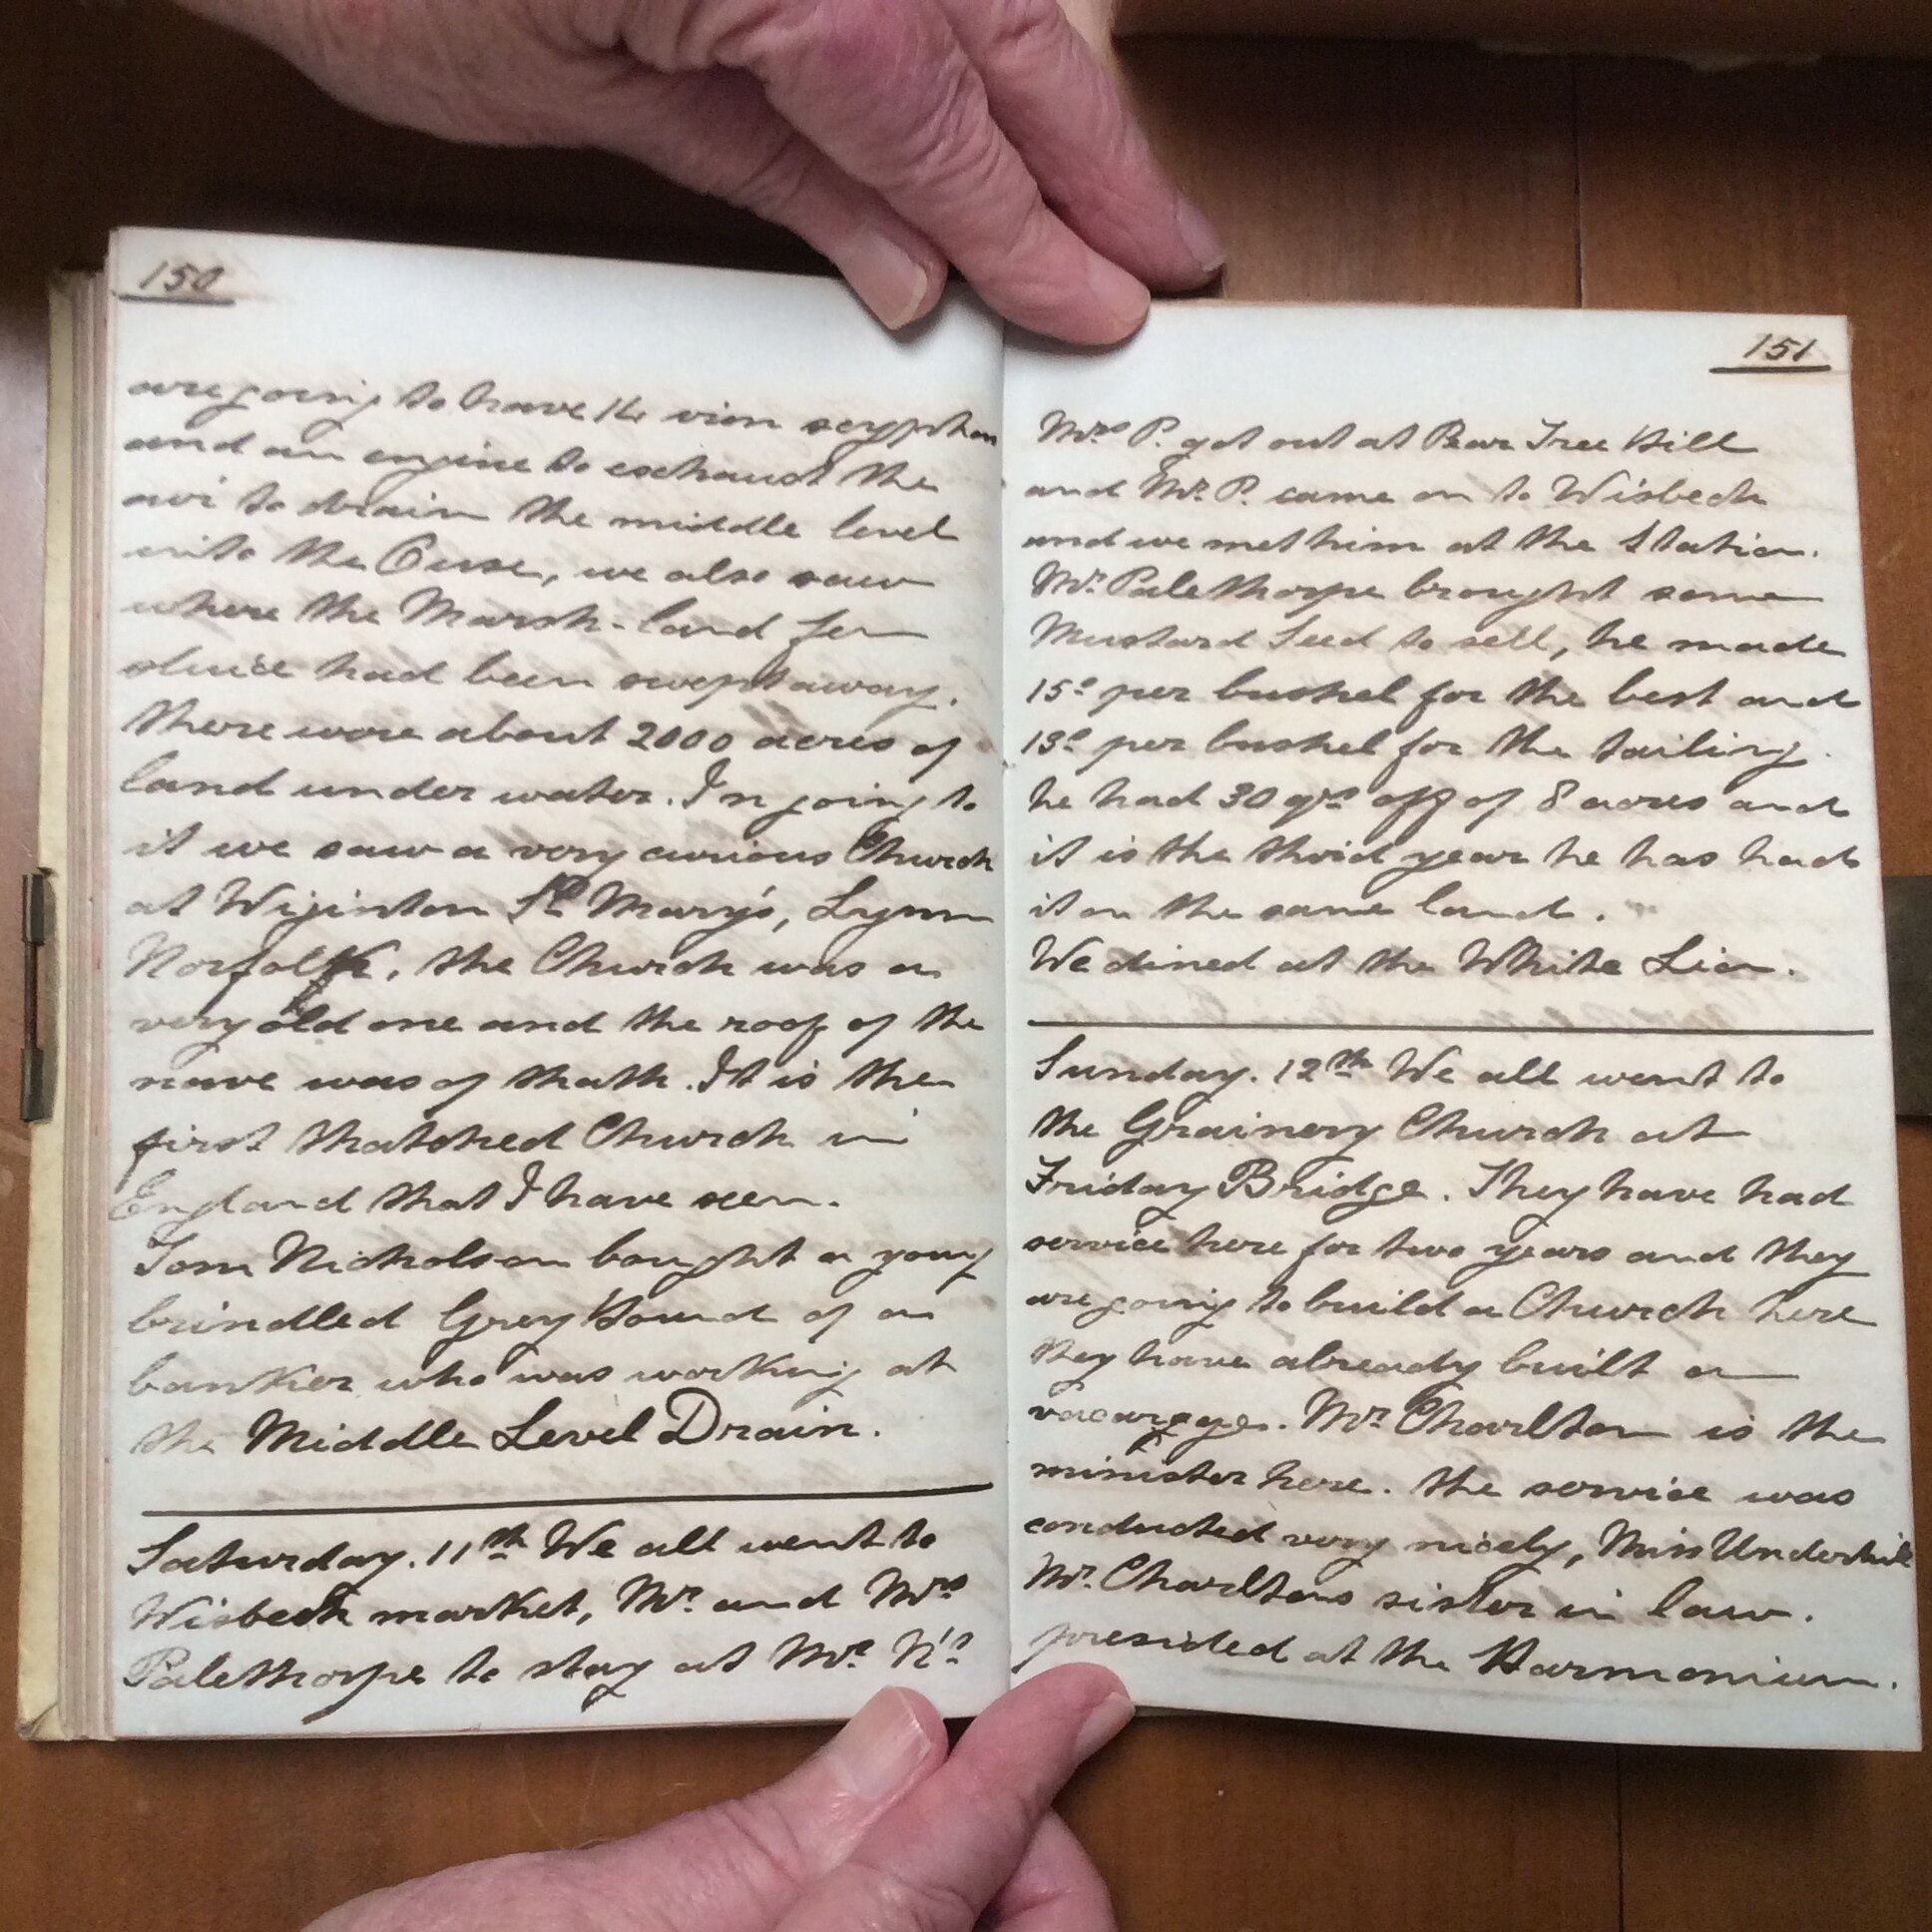 150
are going to have 16 iron scyphon
and an engine to exchaust the
air to drain the middle level
into the Ouse, we also saw
where the Marsh-land fen
sluice had been swept away.
There were about 2000 acres of
land under water. In going to
it we saw a very curious Church
at Wiginton St Mary's, Lynn
Norfolk, the Church was a
very old one and the roof of the
nave was of thath. It is the
first thatched Church in
England that I have seen.
Tom Nicholson bought a young
brindled Grey Hound of a
banker who was working at
the Middle Level Drain.
Saturday. 11th We all went to
Wisbech market, Mr. and Mrs
Palethorpe to stay at Mr. N's
151
Mrs P. got out at Pear Tree Hill
and Mr. P. came on to Wisbech
and we met him at the Station.
Mr. Palethorpe brought some
Mustard Seed to sell, he made
15s per bushel for the best and
13s per bushel for the tailing.
he had 30 qrs off of 8 acres and
it is the third year he has had
it on the same land.
We dined at the White Lion.
Sunday. 12th We all went to
the Grainery Church at
Friday Bridge. They have had
service here for two years and they
are going to build a Church here
they have already built a
vacarage. Mr. Charlton is the
minister here. the service was
conducted very nicely, Miss Underhill
Mr. Charltons sister in law.
presided at the Harmonium.